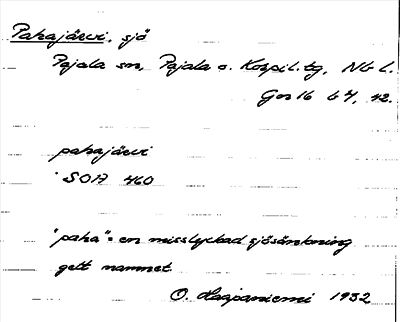 Pahajärvi, sjö
Pajala sn, Pajala o. Korpil. tg, Nb l.
Gos 16 b 4, 42.
pahajärvi
SOA 460
"paha" = en misslyckad sjösänkning
gett namnet
O. Haapaniemi 1932